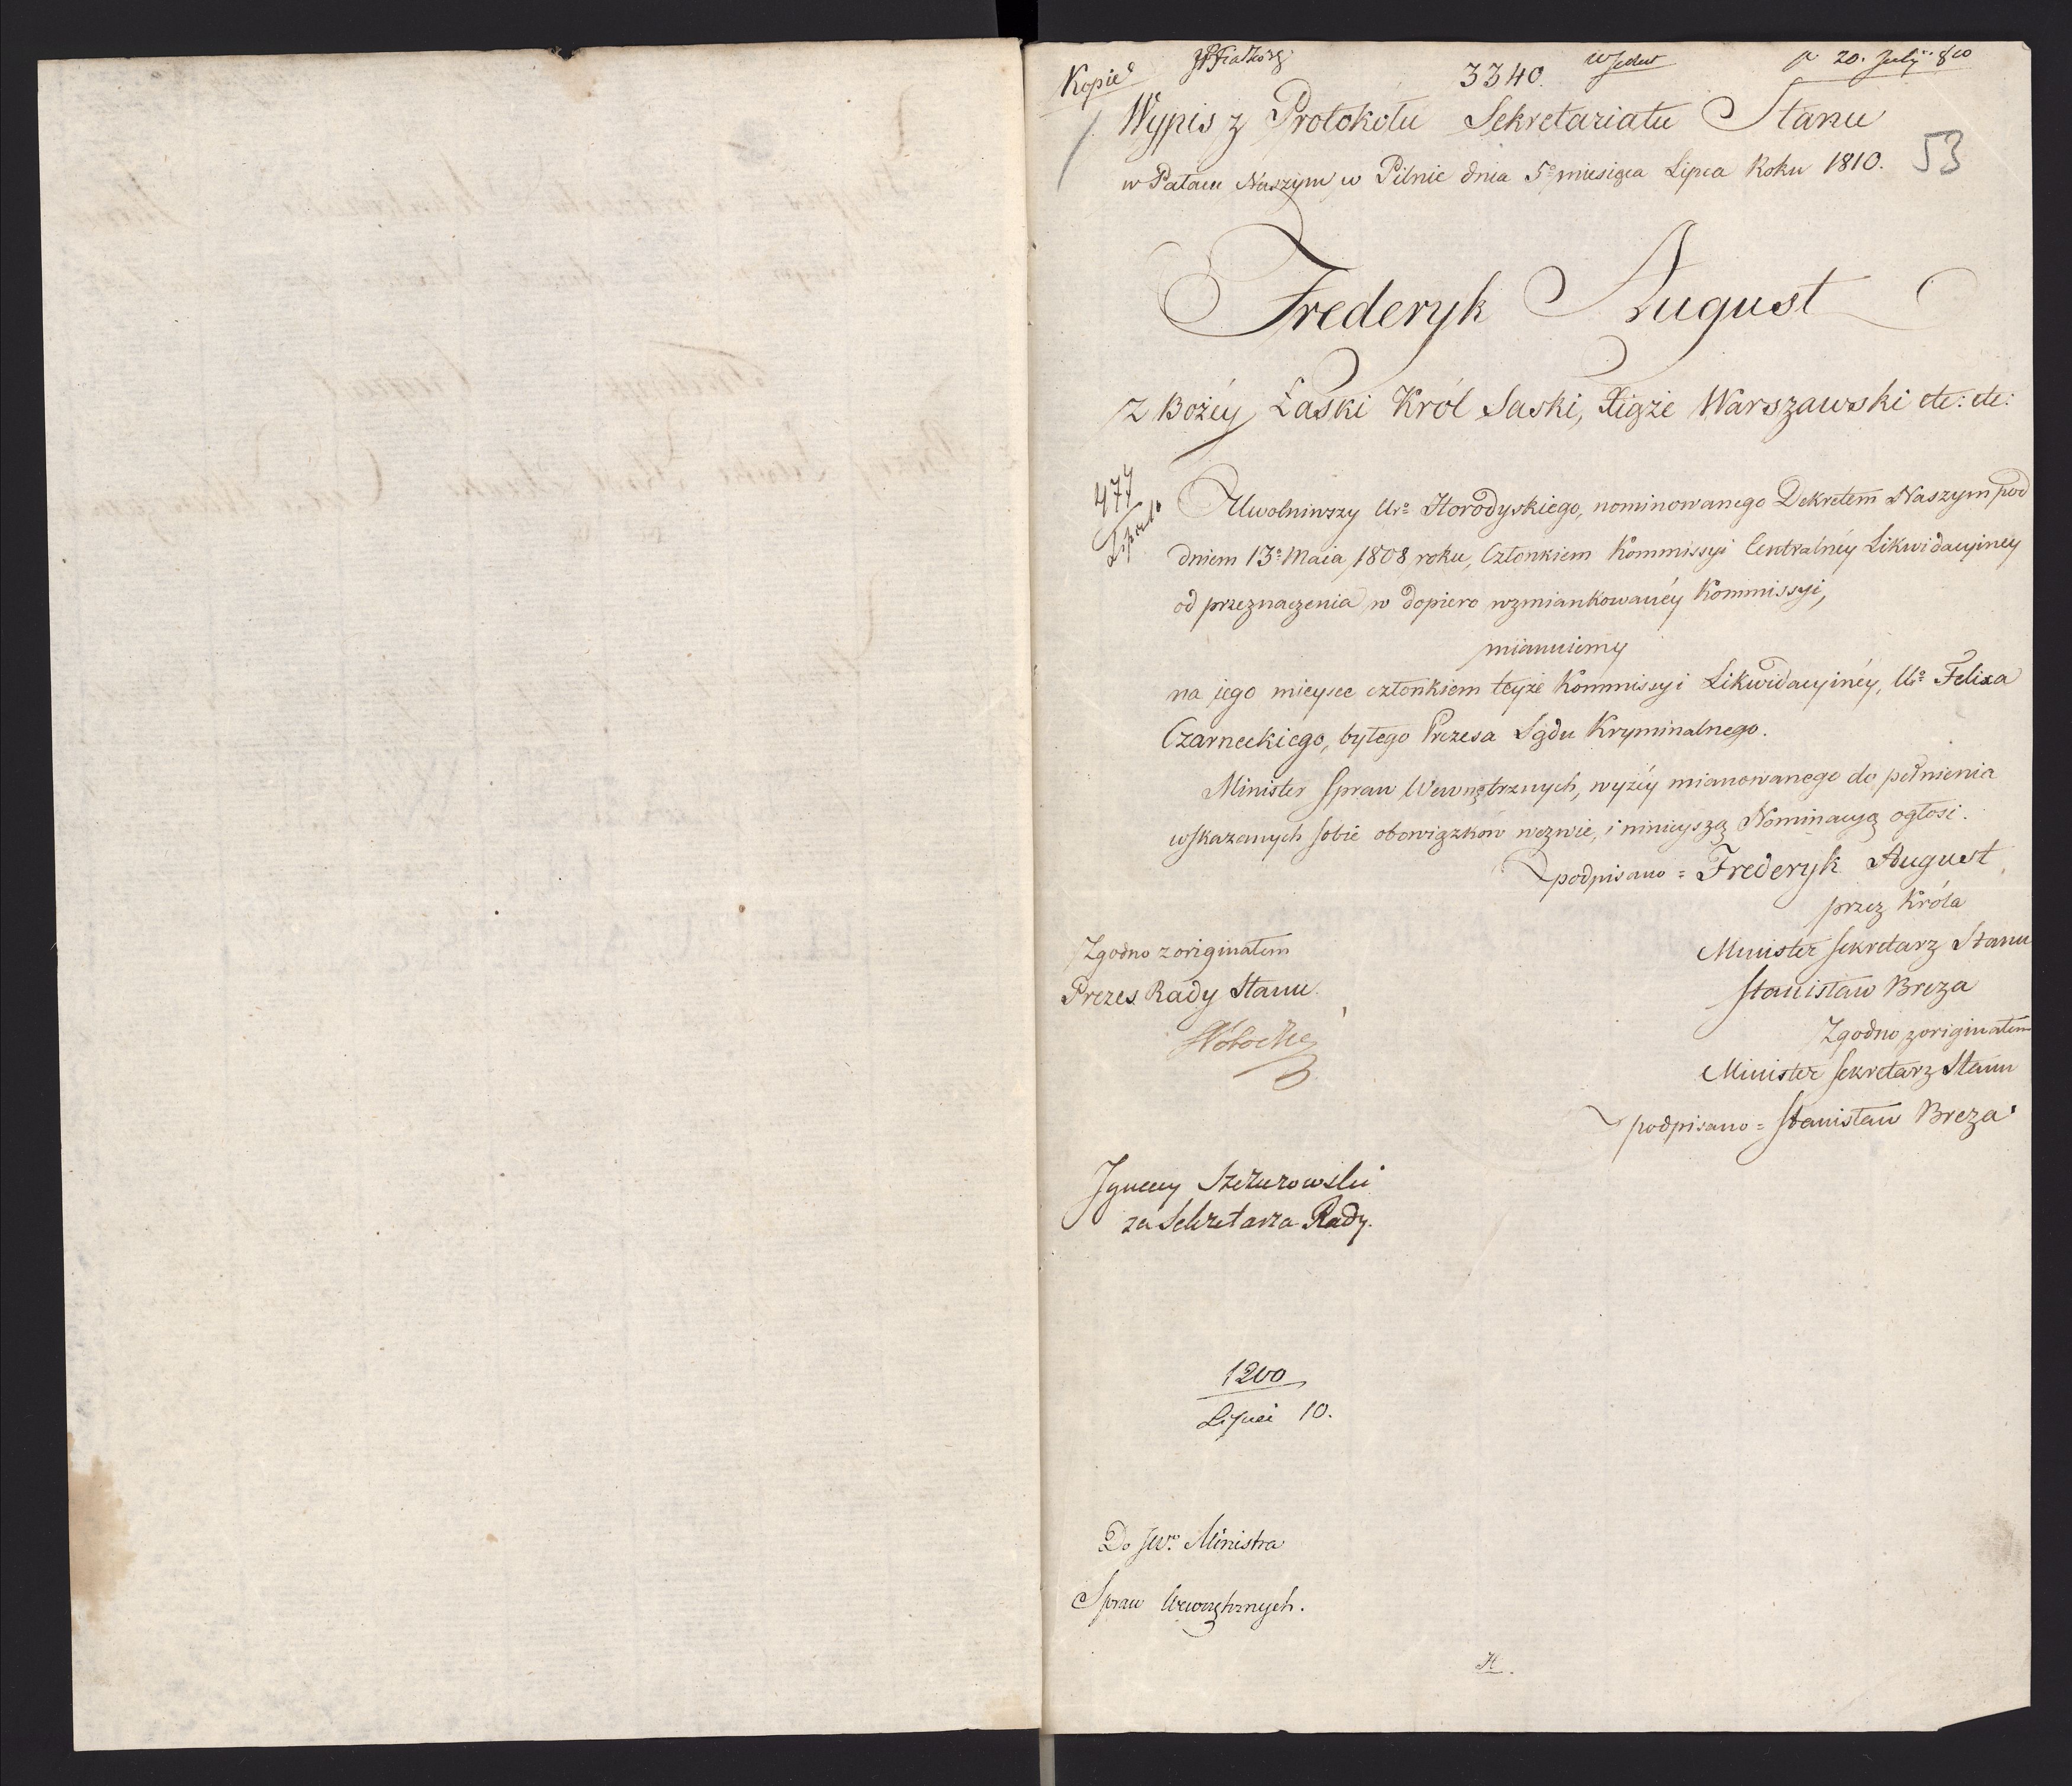 Kopie
3340.
pr 20. July 810
Wypis z Protokołu Sekretariatu Stanu
53
w Pałacu Naszym w Pilnic dnia 5º miesiąca Lipca Roku 1810.
Frederyk August
z Bożéy Łaski Król Saski, Xiąże Warszawski etc: etc:
477
Uwolniwszy Uro Horodyskiego, nominowanego Dekretem Naszym pod
dniem 13º Maia 1808 roku, Członkiem Kommissyi Centralnéy Likwidacyiney
od przeznaczenia w dopiero wzmiankowanéy Kommissyi,
mianuiemy
na jego mieysce członkiem teyże Kommissyi Likwidacyinéy, Uro Felixa
Czarneckiego, byłego Prezesa Sądu Kryminalnego.
Minister Spraw Wewnętrznych, wyżéy mianowanego do pełnienia
wskazanych sobie obowiązków wezwie, i ninieyszą Nominacyą ogłosi.
podpisano = Frederyk August
przez Króla
Minister Sekretarz Stanu
Stanisław Breza
Zgodno z originałem
Minister Sekretarz Stanu
podpisano = Stanisław Breza
Zgodno z originałem
Prezes Rady Stanu
Ignacy Szczurowski
za Sekretarza Rady.
1200
Lipca 10.
Do JW. Ministra
Spraw Wewnętrznych.